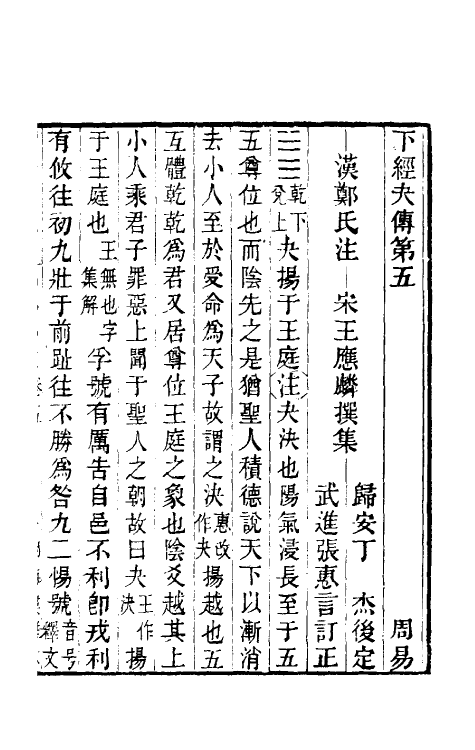 下經夬傳第五　周易
漢鄭氏注　宋王應麟撰集　歸安丁　杰後定
武進張惠言訂正
䷪乾下兌上夬揚于王庭注夬決也陽氣浸長至于五
五尊位也而陰先之是猶聖人積德說天下以漸消
去小人至於受命爲天子故謂之決惠改作夬揚越也五
互體乾乾爲君又居尊位王庭之象也陰爻越其上
小人乘君子罪惡上聞于聖人之朝故曰夬王作決揚
于王庭也王無也字集解孚號有厲告自邑不利卽戎利
有攸往初九壯于前趾往不勝爲咎九二惕號音号釋文